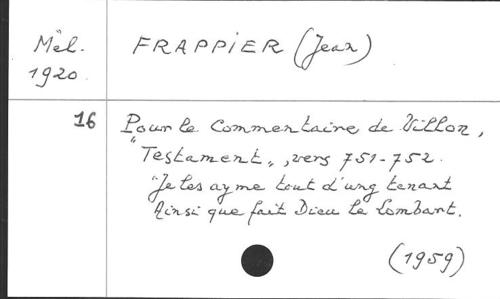 Mél. FRAPPIER (Jean)
1920.
16 Pour le Commentaire de Villon,
"Testament", vers 751-752.
"Je les ayme tout d'ung tenant
Ainsi que fait Dieu le Lombart.
(1959)